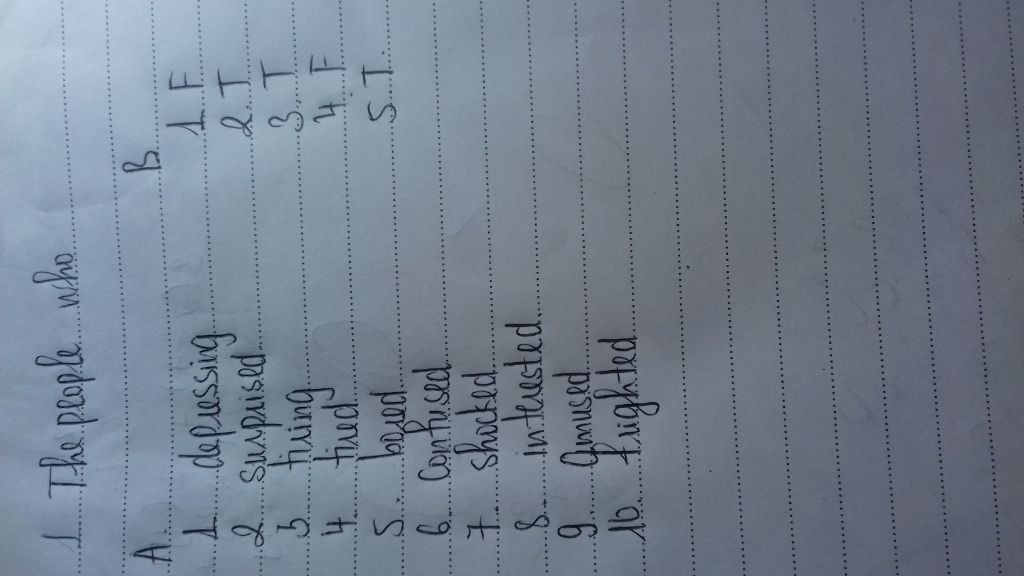 1 The people who
A B
1 depressing 1 F
2 surprised 2. T
3 tiring 3. T
4 tired 4. F
5. bored 5. T.
6 Confused
7 shocked
8 interested
9 Amused
10 frighted